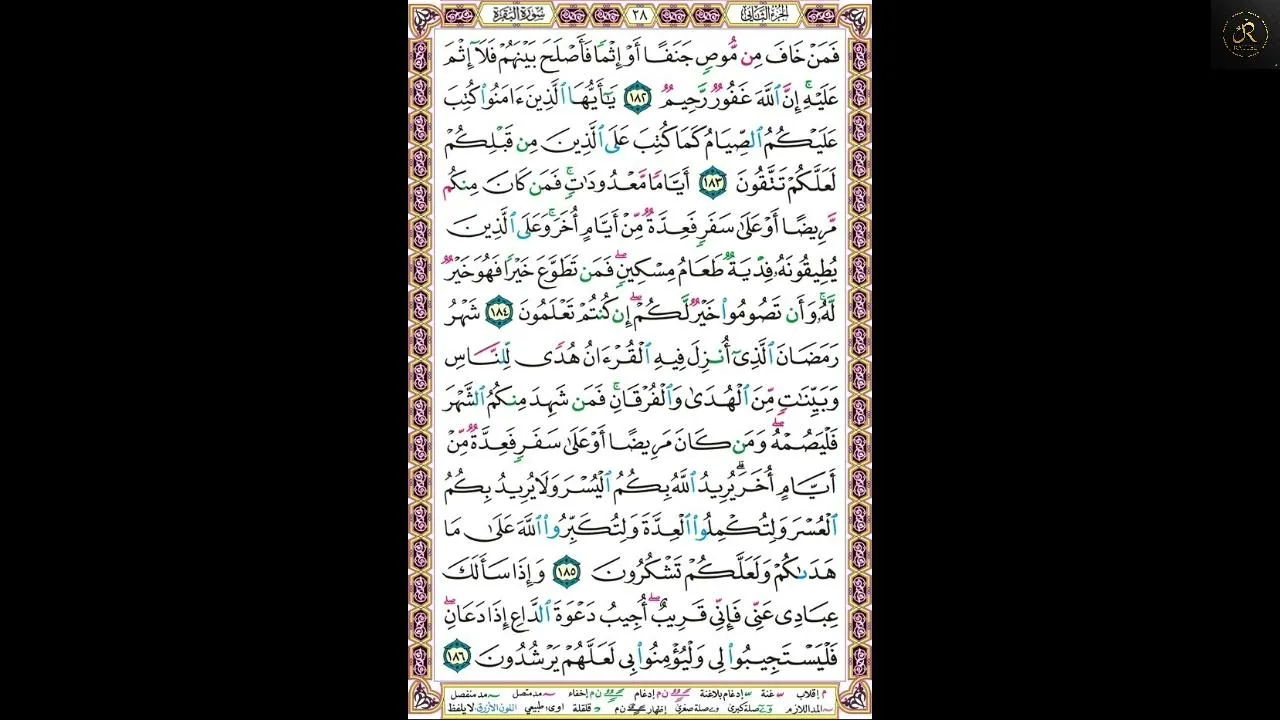 الجزء الثاني ٢٨ سورة البقرة
فَمَنْ خَافَ مِن مُّوصٍ جَنَفًا أَوْ إِثْمًا فَأَصْلَحَ بَيْنَهُمْ فَلَآ إِثْمَ
عَلَيْهِۚ إِنَّ ٱللَّهَ غَفُورٌ رَّحِيمٌ ١٨٢ يَـٰٓأَيُّهَا ٱلَّذِينَ ءَامَنُوا۟ كُتِبَ
عَلَيْكُمُ ٱلصِّيَامُ كَمَا كُتِبَ عَلَى ٱلَّذِينَ مِن قَبْلِكُمْ
لَعَلَّكُمْ تَتَّقُونَ ١٨٣ أَيَّامًا مَّعْدُودَٰتٍۚ فَمَن كَانَ مِنكُم
مَّرِيضًا أَوْ عَلَىٰ سَفَرٍ فَعِدَّةٌ مِّنْ أَيَّامٍ أُخَرَۚ وَعَلَى ٱلَّذِينَ
يُطِيقُونَهُۥ فِدْيَةٌ طَعَامُ مِسْكِينٍۖ فَمَن تَطَوَّعَ خَيْرًا فَهُوَ خَيْرٌ
لَّهُۥۚ وَأَن تَصُومُوا۟ خَيْرٌ لَّكُمْۖ إِن كُنتُمْ تَعْلَمُونَ ١٨٤ شَهْرُ
رَمَضَانَ ٱلَّذِىٓ أُنزِلَ فِيهِ ٱلْقُرْءَانُ هُدًى لِّلنَّاسِ
وَبَيِّنَـٰتٍ مِّنَ ٱلْهُدَىٰ وَٱلْفُرْقَانِۚ فَمَن شَهِدَ مِنكُمُ ٱلشَّهْرَ
فَلْيَصُمْهُۖ وَمَن كَانَ مَرِيضًا أَوْ عَلَىٰ سَفَرٍ فَعِدَّةٌ مِّنْ
أَيَّامٍ أُخَرَۗ يُرِيدُ ٱللَّهُ بِكُمُ ٱلْيُسْرَ وَلَا يُرِيدُ بِكُمُ
ٱلْعُسْرَ وَلِتُكْمِلُوا۟ ٱلْعِدَّةَ وَلِتُكَبِّرُوا۟ ٱللَّهَ عَلَىٰ مَا
هَدَىٰكُمْ وَلَعَلَّكُمْ تَشْكُرُونَ ١٨٥ وَإِذَا سَأَلَكَ
عِبَادِى عَنِّى فَإِنِّى قَرِيبٌۖ أُجِيبُ دَعْوَةَ ٱلدَّاعِ إِذَا دَعَانِۖ
فَلْيَسْتَجِيبُوا۟ لِى وَلْيُؤْمِنُوا۟ بِى لَعَلَّهُمْ يَرْشُدُونَ ١٨٦
م إقلاب غنة إدغام بلاغنة ن م إدغام ن م إخفاء مد متصل مد منفصل
المد اللازم صلة كبرى صلة صغرى إظهار ن م قلقلة طبيعي اللون الأزرق لا يلفظ